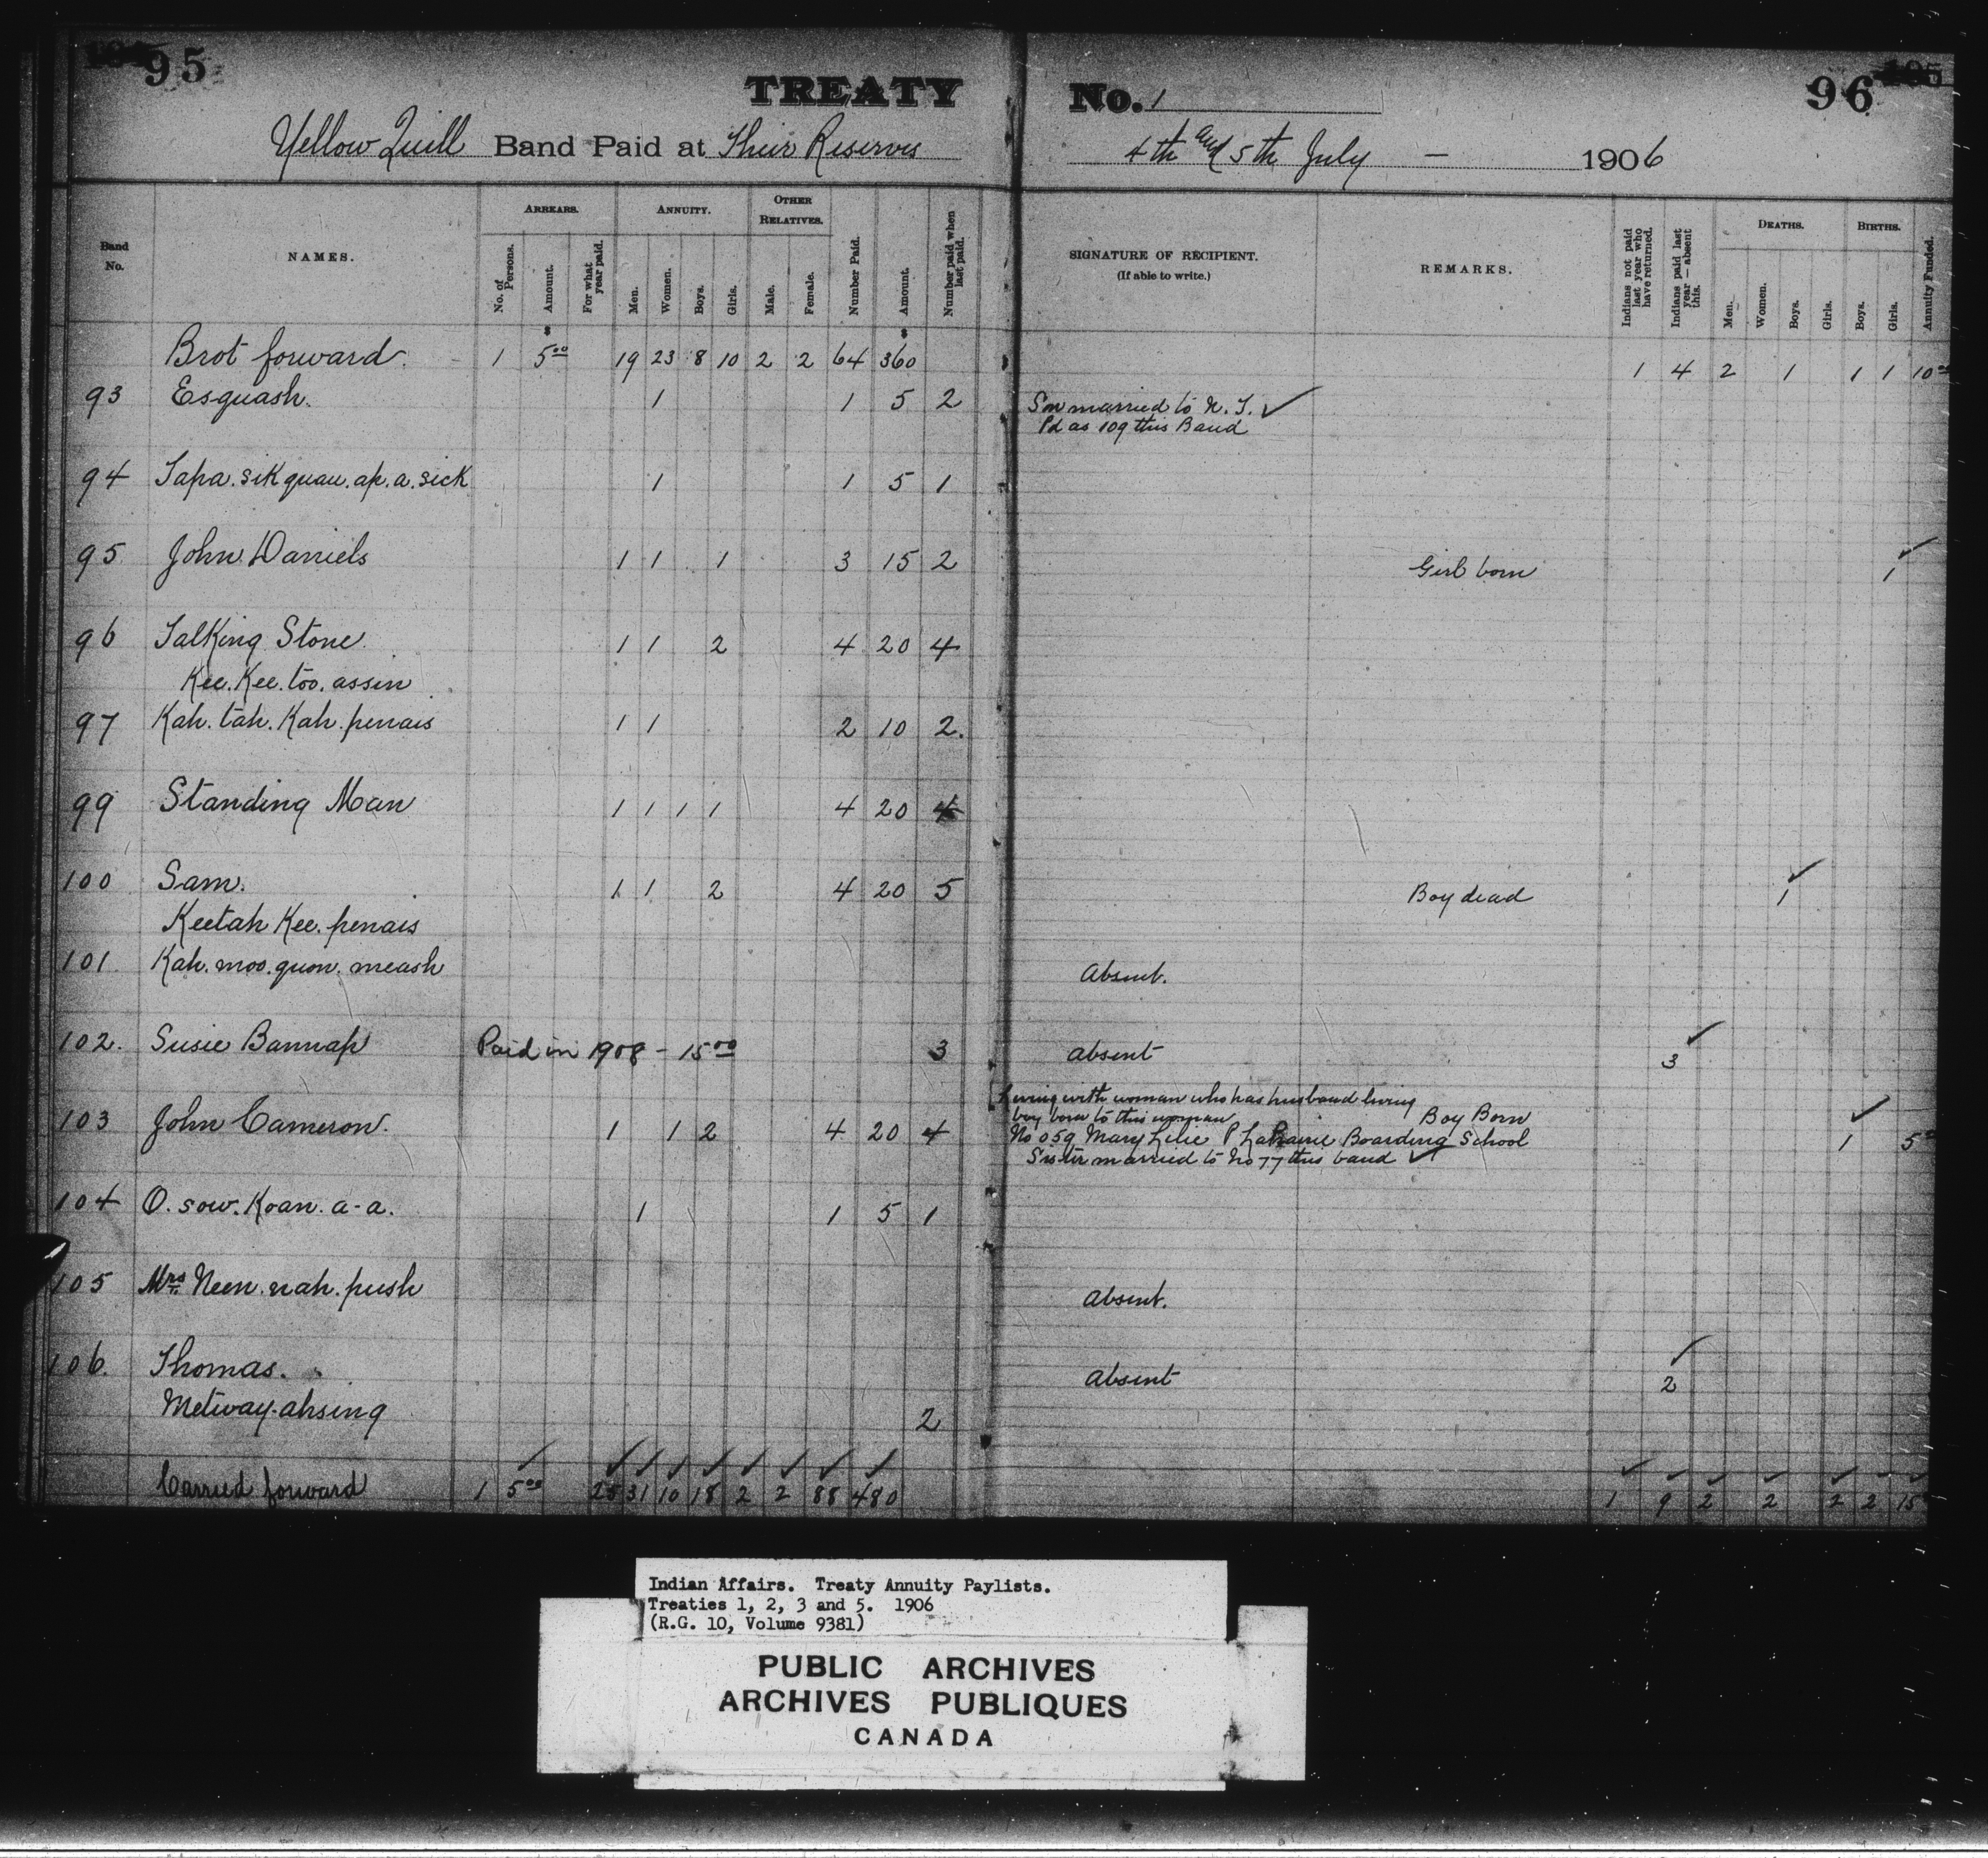 95
TREATY No. 1
96
Yellow Quill Band Paid at Their Reserves
4th and 5th July - 1906
Band No.
NAMES.
ARREARS.
No. of Persons.
Amount.
For what year paid.
ANNUITY.
Men.
Women.
Boys.
Girls.
OTHER RELATIVES.
Male.
Female.
Number Paid.
Amount.
Number paid when last paid.
SIGNATURE OF RECIPIENT.
(If able to write.)
REMARKS.
Indians not paid last year who have returned.
Indians paid last year — absent this.
DEATHS.
Men.
Women.
Boys.
Girls.
BIRTHS.
Boys.
Girls.
Annuity Funded.
Brot forward. 1 5.00 19 23 8 10 2 2 64 360 1 4 2 1 1 1 10.00
93 Esquash. 1 1 5 2 Son married to N. T. ✓
Pd as 109 this Band
94 Tapa. sik quau. ap. a. sick 1 1 5 1
95 John Daniels 1 1 1 3 15 2 Girl born 1 ✓
96 Talking Stone 1 1 2 4 20 4
Kee. Kee. too. assin
97 Kah. tah. Kah. penais 1 1 2 10 2.
99 Standing Man 1 1 1 1 4 20 4
100 Sam. 1 1 2 4 20 5 Boy dead 1 ✓
Keetah Kee. penais
101 Kah. moo. quon. meash Absent.
102. Susie Bannap Paid in 1908 - 15.00 3 absent 3 ✓
Living with woman who has husband living
boy born to this woman Boy Born ✓
103 John Cameron. 1 1 2 4 20 4 No 059 Mary Lilie P LaPrairie Boarding School 1 5.00
Sister married to No 77 this band ✓
104 O. sow. Koan. a-a. 1 1 5 1
105 Mrs. Neen. nah. push Absent.
106. Thomas. Absent 2 ✓
Metway-ahsing 2
Carried forward 1 5.00 25 31 10 18 2 2 88 480 1 9 2 2 2 2 15
Indian Affairs. Treaty Annuity Paylists.
Treaties 1, 2, 3 and 5. 1906
(R.G. 10, Volume 9381)
PUBLIC ARCHIVES
ARCHIVES PUBLIQUES
CANADA